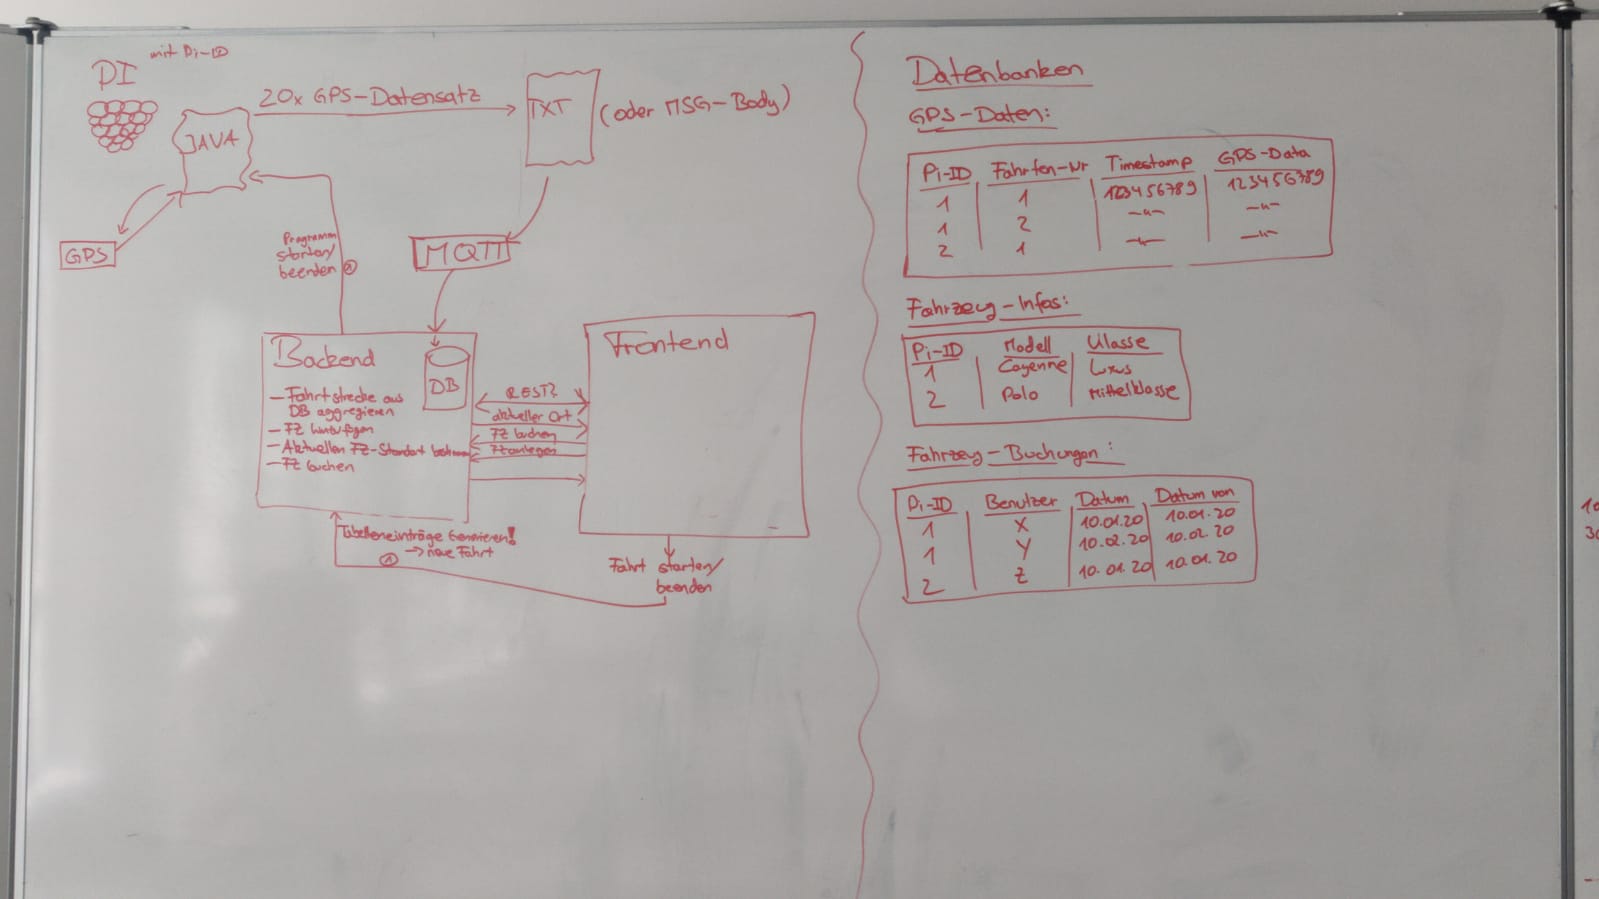 PI mit Pi-ID
JAVA
20x GPS-Datensatz
TXT
(oder MSG-Body)
GPS
Programm
starten/
beenden ②
MQTT
Backend
DB
- Fahrtstrecke aus
DB aggregieren
- FZ hinzufügen
- Aktuellen FZ-Standort
- FZ buchen
REST?
aktueller Ort
FZ buchen
FZ anlegen
Frontend
Tabelleneinträge generieren!
→ neue Fahrt
①
Fahrt starten/
beenden
Datenbanken
GPS-Daten:
Pi-ID Fahrten-Nr Timestamp GPS-Data
1 1 123456789 123456789
1 2 -"- -"-
2 1 -"- -"-
Fahrzeug-Infos:
Pi-ID Modell Klasse
1 Cayenne Luxus
2 Polo Mittelklasse
Fahrzeug-Buchungen:
Pi-ID Benutzer Datum Datum von
1 X 10.01.20 10.01.20
1 Y 10.02.20 10.02.20
2 Z 10.01.20 10.01.20